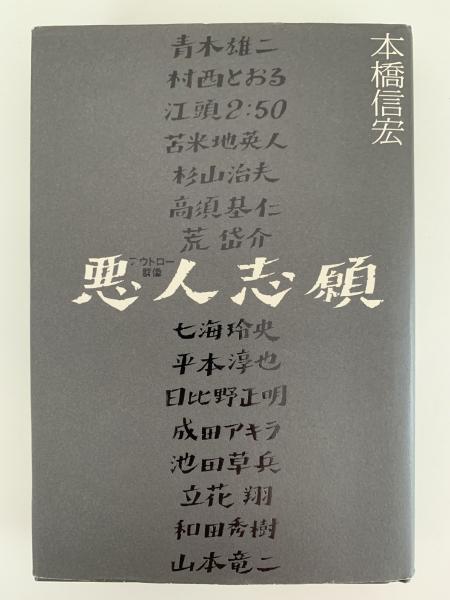 本橋信宏
青木雄二
村西とおる
江頭2:50
苫米地英人
杉山治夫
高須基仁
荒岱介
悪人志願
アウトロー
群像
七海玲央
平本淳也
日比野正明
成田アキラ
池田草兵
立花翔
和田秀樹
山本竜二